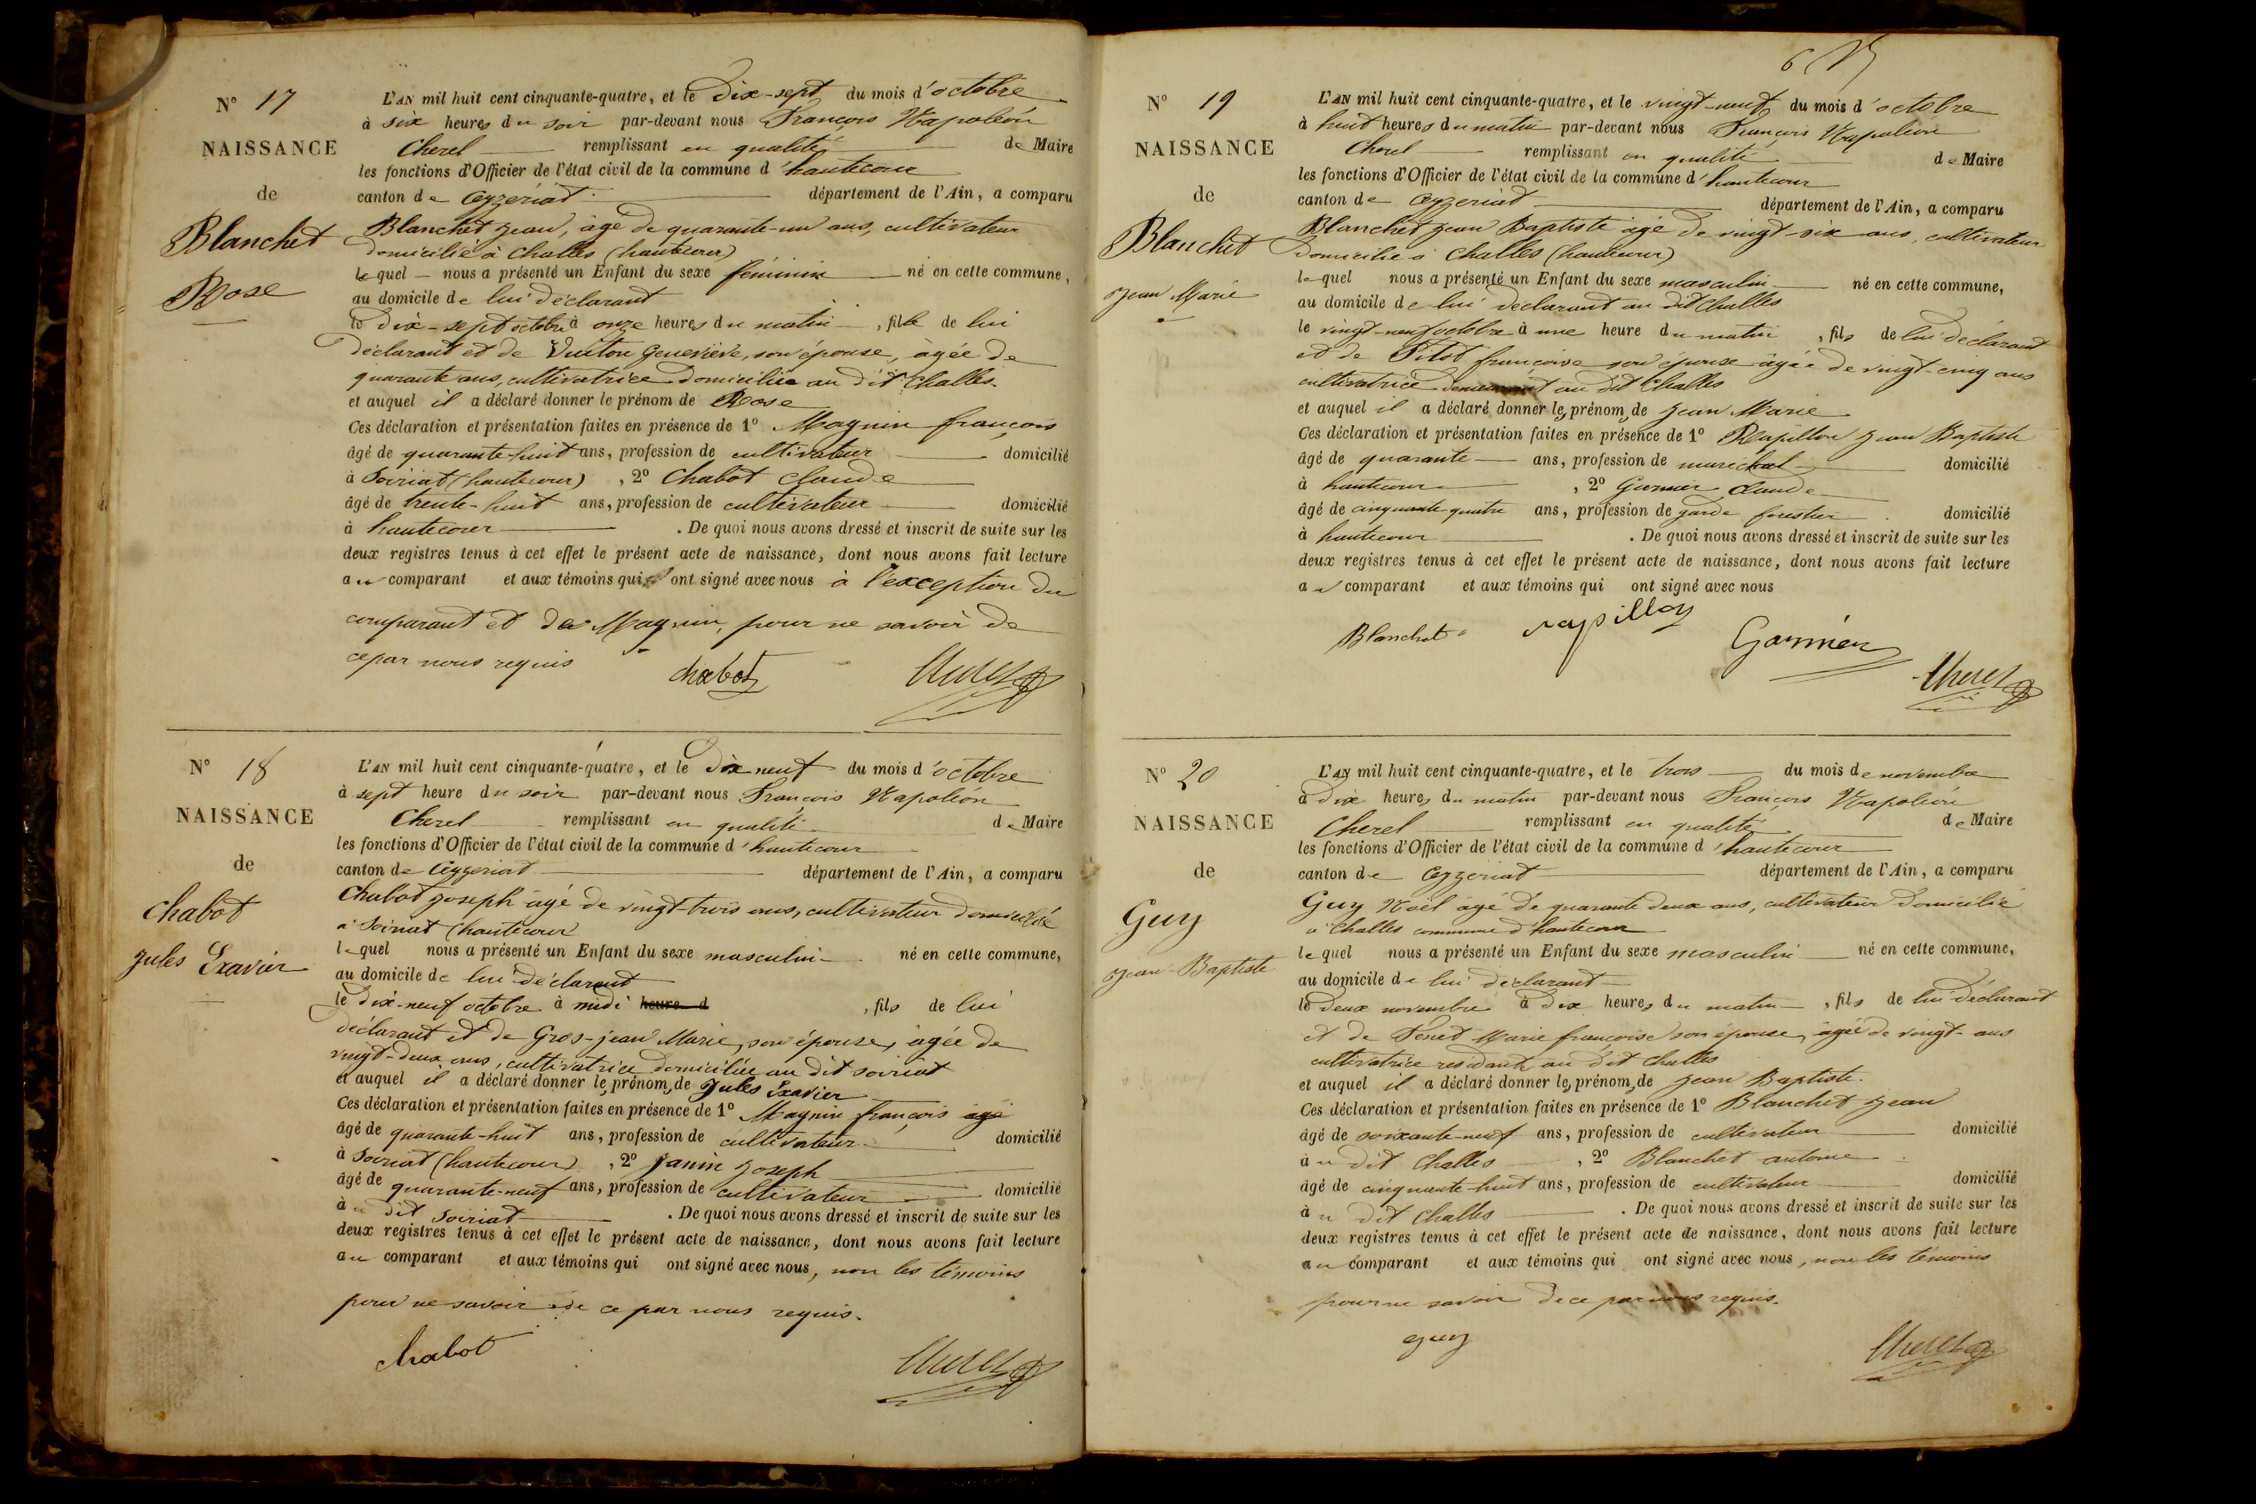 N° 17
NAISSANCE
de
Blanchet
Rose
L'AN mil huit cent cinquante-quatre, et le Dix-sept du mois d'octobre
à six heures du soir par-devant nous François Napoléon
Cherel remplissant en qualité de Maire
les fonctions d'Officier de l'état civil de la commune d'hautecour
canton de Ceyzeriat département de l'Ain, a comparu
Blanchet Jean, âgé de quarante-un ans, cultivateur
domicilié à Challes (hautecour)
lequel nous a présenté un Enfant du sexe féminin né en cette commune,
au domicile de lui déclarant
le dix-sept octobre à onze heures du matin, fille de lui
déclarant et de Geneviève, son épouse, âgée de
quarante ans, cultivatrice domiciliée au dit Challes.
et auquel il a déclaré donner le prénom de Rose
Ces déclaration et présentation faites en présence de 1° Magnin françois
âgé de quarante-huit ans, profession de cultivateur domicilié
à Soiriat (hautecour), 2° Chabot Claude
âgé de trente-huit ans, profession de cultivateur domicilié
à hautecour. De quoi nous avons dressé et inscrit de suite sur les
deux registres tenus à cet effet le présent acte de naissance, dont nous avons fait lecture
au comparant et aux témoins qui ont signé avec nous à l'exception du
comparant et de Magnin, pour ne savoir de
ce par nous requis
chabot Cherel
N° 18
NAISSANCE
de
Chabot
Jules Exavier
L'AN mil huit cent cinquante-quatre, et le dix neuf du mois d'octobre
à sept heure du soir par-devant nous François Napoléon
Cherel remplissant en qualité de Maire
les fonctions d'Officier de l'état civil de la commune d'hautecour
canton de Ceyzeriat département de l'Ain, a comparu
Chabot Joseph âgé de vingt-trois ans, cultivateur domicilié
à Soiriat (hautecour)
lequel nous a présenté un Enfant du sexe masculin né en cette commune,
au domicile de lui déclarant
le dix-neuf octobre à midi heure d, fils de lui
déclarant et de Gros-jean Marie, son épouse, âgée de
vingt-deux ans, cultivatrice domiciliée au dit soiriat
et auquel il a déclaré donner les prénoms de Jules Exavier
Ces déclaration et présentation faites en présence de 1° Magnin françois âgé
âgé de quarante-huit ans, profession de cultivateur domicilié
à Soiriat (hautecour), 2° Janin Joseph
âgé de quarante-neuf ans, profession de cultivateur domicilié
au dit Soiriat. De quoi nous avons dressé et inscrit de suite sur les
deux registres tenus à cet effet le présent acte de naissance, dont nous avons fait lecture
au comparant et aux témoins qui ont signé avec nous, non les témoins
pour ne savoir de ce par nous requis.
chabot Cherel
N° 19
NAISSANCE
de
Blanchet
Jean Marie
L'AN mil huit cent cinquante-quatre, et le vingt-neuf du mois d'octobre
à huit heures du matin par-devant nous François Napoléon
Cherel remplissant en qualité de Maire
les fonctions d'Officier de l'état civil de la commune d'hautecour
canton de Ceyzeriat département de l'Ain, a comparu
Blanchet Jean Baptiste âgé de vingt-six ans, cultivateur
domicilié à Challes (hautecour)
lequel nous a présenté un Enfant du sexe masculin né en cette commune,
au domicile de lui déclarant au dit Challes
le vingt-neuf octobre à une heure du matin, fils de lui déclarant
et de Pitot françoise son épouse âgée de vingt-cinq ans
cultivatrice au dit Challes
et auquel il a déclaré donner les prénoms de Jean Marie
Ces déclaration et présentation faites en présence de 1° Rapillon Jean Baptiste
âgé de quarante ans, profession de maréchal domicilié
à hautecour, 2° Garnier Claude
âgé de cinquante-quatre ans, profession de garde forestier domicilié
à hautecour. De quoi nous avons dressé et inscrit de suite sur les
deux registres tenus à cet effet le présent acte de naissance, dont nous avons fait lecture
au comparant et aux témoins qui ont signé avec nous
Blanchet rapillon Garnier Cherel
N° 20
NAISSANCE
de
Guy
Jean-Baptiste
L'AN mil huit cent cinquante-quatre, et le trois du mois de novembre
à dix heures du matin par-devant nous François Napoléon
Cherel remplissant en qualité de Maire
les fonctions d'Officier de l'état civil de la commune d'hautecour
canton de Ceyzeriat département de l'Ain, a comparu
Guy Noël âgé de quarante deux ans, cultivateur domicilié
à Challes commune d'hautecour
lequel nous a présenté un Enfant du sexe masculin né en cette commune,
au domicile de lui déclarant
le deux novembre à dix heures du matin, fils de lui déclarant
et de Marie françoise son épouse, âgée de vingt-ans
cultivatrice résidante au dit Challes
et auquel il a déclaré donner les prénoms de Jean Baptiste.
Ces déclaration et présentation faites en présence de 1° Blanchet Jean
âgé de soixante-neuf ans, profession de cultivateur domicilié
au dit Challes, 2° Blanchet antoine
âgé de cinquante-huit ans, profession de cultivateur domicilié
au dit Challes. De quoi nous avons dressé et inscrit de suite sur les
deux registres tenus à cet effet le présent acte de naissance, dont nous avons fait lecture
au comparant et aux témoins qui ont signé avec nous, non les témoins
pour ne savoir de ce par nous requis.
guy Cherel